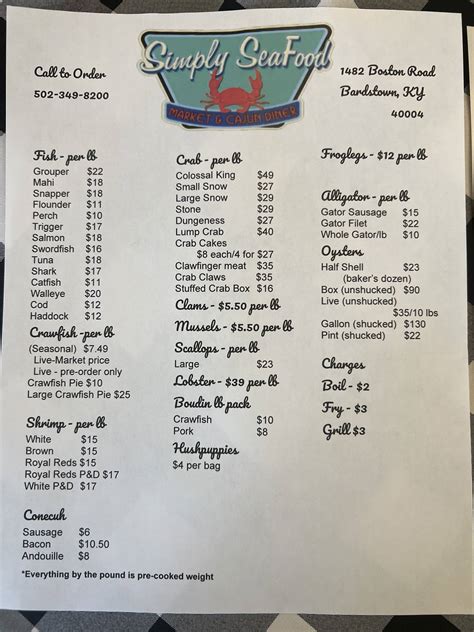 Call to Order
502-349-8200
Simply SeaFood
MARKET & CAJUN DINER
1482 Boston Road
Bardstown, KY
40004
Fish - per lb
Grouper $22
Mahi $18
Snapper $18
Flounder $11
Perch $10
Trigger $17
Salmon $18
Swordfish $16
Tuna $18
Shark $17
Catfish $11
Walleye $20
Cod $12
Haddock $12
Crawfish -per lb
(Seasonal) $7.49
Live-Market price
Live - pre-order only
Crawfish Pie $10
Large Crawfish Pie $25
Shrimp - per lb
White $15
Brown $15
Royal Reds $15
Royal Reds P&D $17
White P&D $17
Conecuh
Sausage $6
Bacon $10.50
Andouille $8
Crab - per lb
Colossal King $49
Small Snow $27
Large Snow $29
Stone $29
Dungeness $27
Lump Crab $40
Crab Cakes
$8 each/4 for $27
Clawfinger meat $35
Crab Claws $35
Stuffed Crab Box $16
Clams - $5.50 per lb
Mussels - $5.50 per lb
Scallops - per lb
Large $23
Lobster - $39 per lb
Boudin lb pack
Crawfish $10
Pork $8
Hushpuppies
$4 per bag
Froglegs - $12 per lb
Alligator - per lb
Gator Sausage $15
Gator Filet $22
Whole Gator/lb $10
Oysters
Half Shell $23
(baker's dozen)
Box (unshucked) $90
Live (unshucked)
$35/10 lbs
Gallon (shucked) $130
Pint (shucked) $22
Charges
Boil - $2
Fry - $3
Grill $3
*Everything by the pound is pre-cooked weight